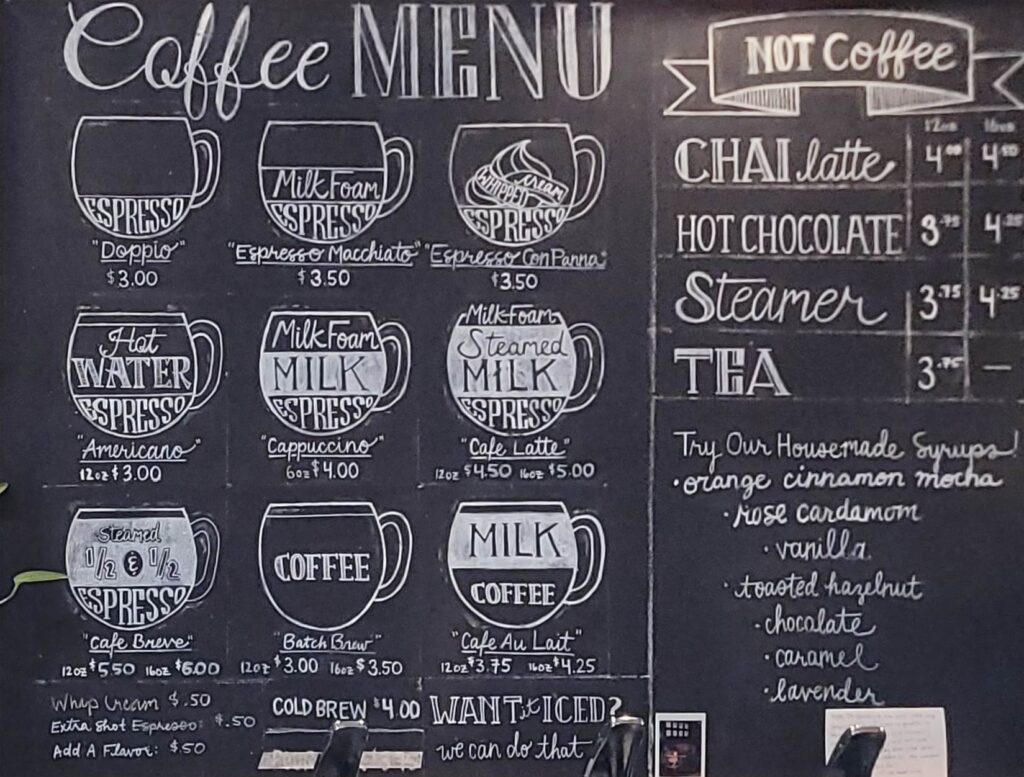 Coffee MENU
ESPRESSO
"Doppio"
$3.00
Milk Foam
ESPRESSO
"Espresso Macchiato"
$3.50
WHIPPED cream
ESPRESSO
"Espresso Con Panna"
$3.50
Hot
WATER
ESPRESSO
"Americano"
12oz $3.00
Milk Foam
MILK
ESPRESSO
"Cappuccino"
6oz $4.00
Milk Foam
Steamed
MILK
ESPRESSO
"Cafe Latte"
12oz $4.50 16oz $5.00
Steamed
1/2 & 1/2
ESPRESSO
"Cafe Breve"
12oz $5.50 16oz $6.00
COFFEE
"Batch Brew"
12oz $3.00 16oz $3.50
MILK
COFFEE
"Cafe Au Lait"
12oz $3.75 16oz $4.25
Whip Cream $.50
Extra Shot Espresso: $.50
Add A Flavor: $.50
COLD BREW $4.00
WANT it ICED?
we can do that
NOT Coffee
12oz 16oz
CHAI latte 4.00 4.50
HOT CHOCOLATE 3.75 4.25
Steamer 3.75 4.25
TEA 3.75 —
Try Our Housemade Syrups!
• orange cinnamon mocha
• rose cardamom
• vanilla
• toasted hazelnut
• chocolate
• caramel
• lavender